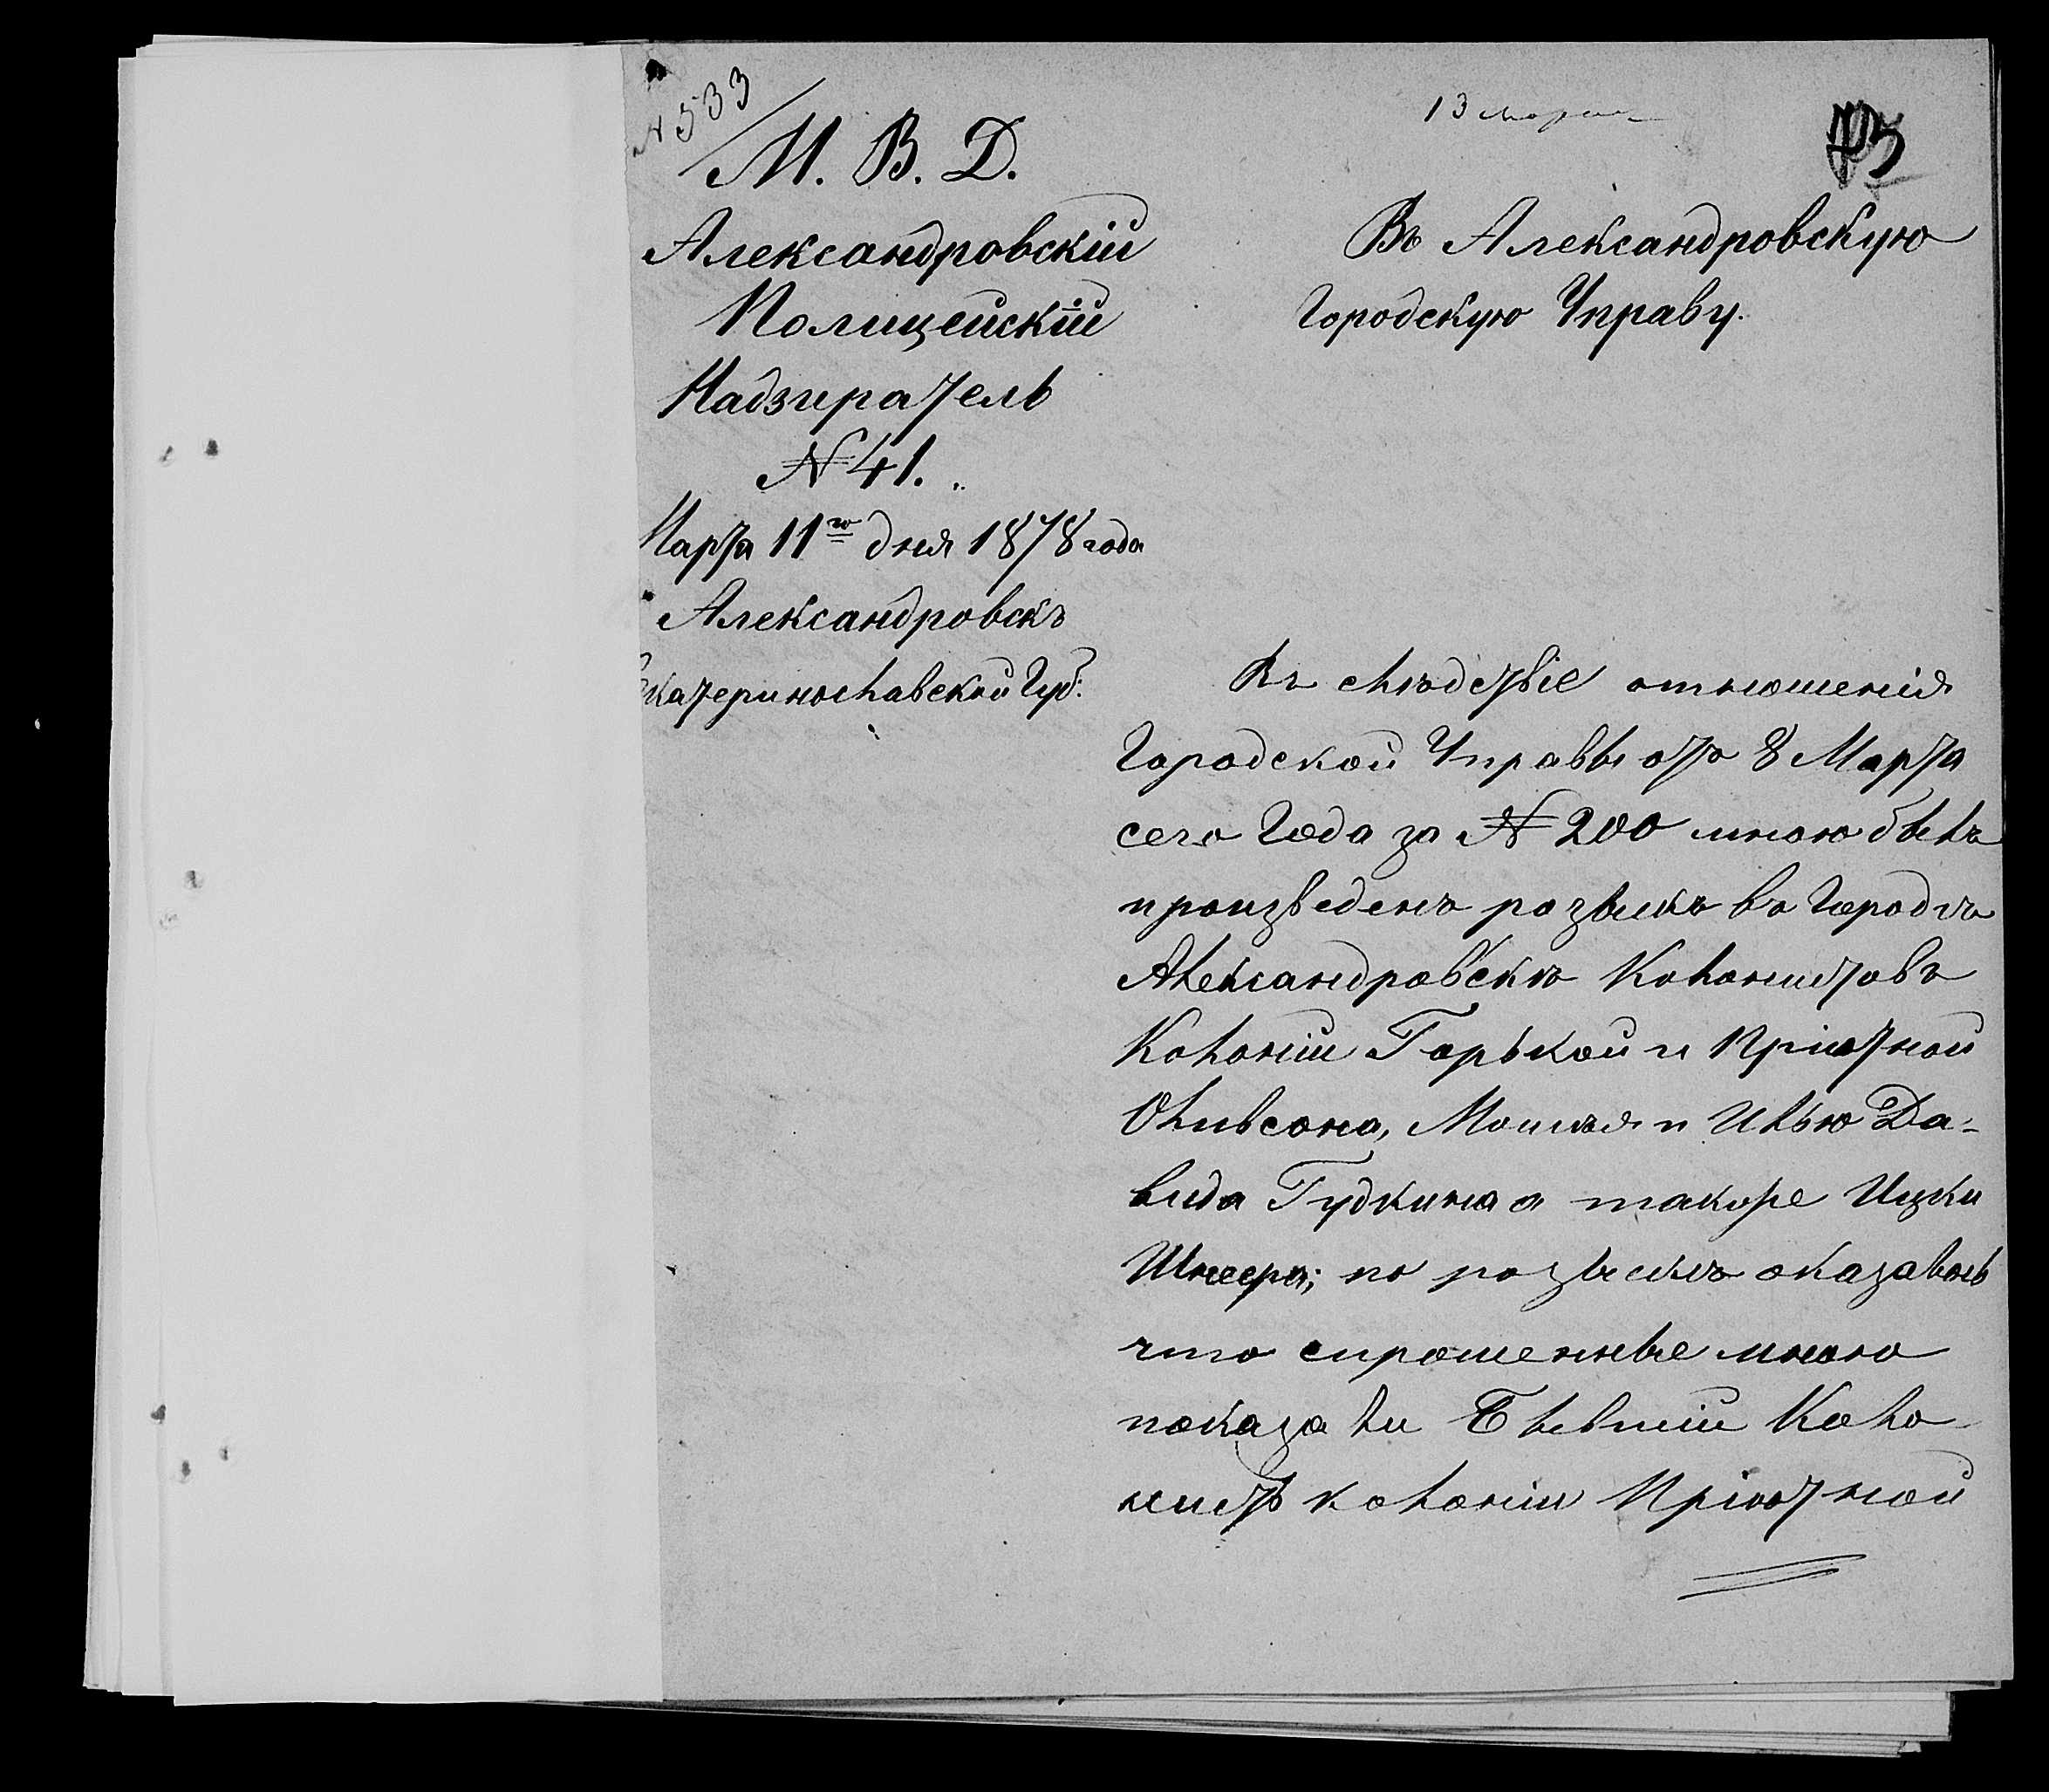 № 533
М. В. Д.
Александровскій
Полицейскій
Надзиратель
№ 41.
Марта 11го дня 1878 года
Александровскъ
Екатеринославской Губ:
13 марта
Въ Александровскую
Городскую Управу.
Въ слѣдствіе отношенія
Городской Управы отъ 8 Марта
сего Года за № 200 мною былъ
произведенъ розыскъ въ Городѣ
Александровскѣ Колонистовъ
Колоніи Горькой и Пріютной
Оливсона, Мошѣя и Илью Да-
вида Гудкина а также Ицки
Шнеера; по розыскѣ оказалось
что спрошенные мною
показали Бывшій Коло-
нистъ колоніи Пріютной